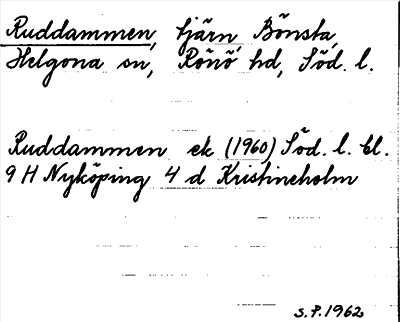 Ruddammen, tjärn, Bönsta,
Helgona sn, Rönö hd, Söd. l.
Ruddammen ek (1960) Söd. l. bl.
9 H Nyköping 4 d Kristineholm
S.P. 1962